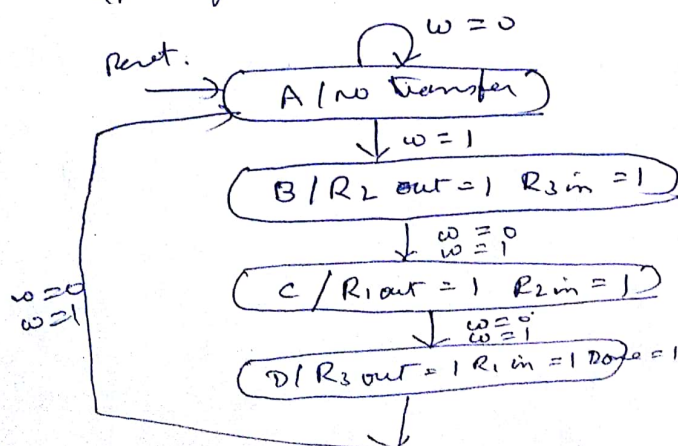 w = 0
Reset.
A / no transfer
w = 1
B / R2 out = 1 R3 in = 1
w = 0
w = 1
C / R1 out = 1 R2 in = 1
w = 0
w = 1
w = 0
w = 1
D / R3 out = 1 R1 in = 1 Done = 1